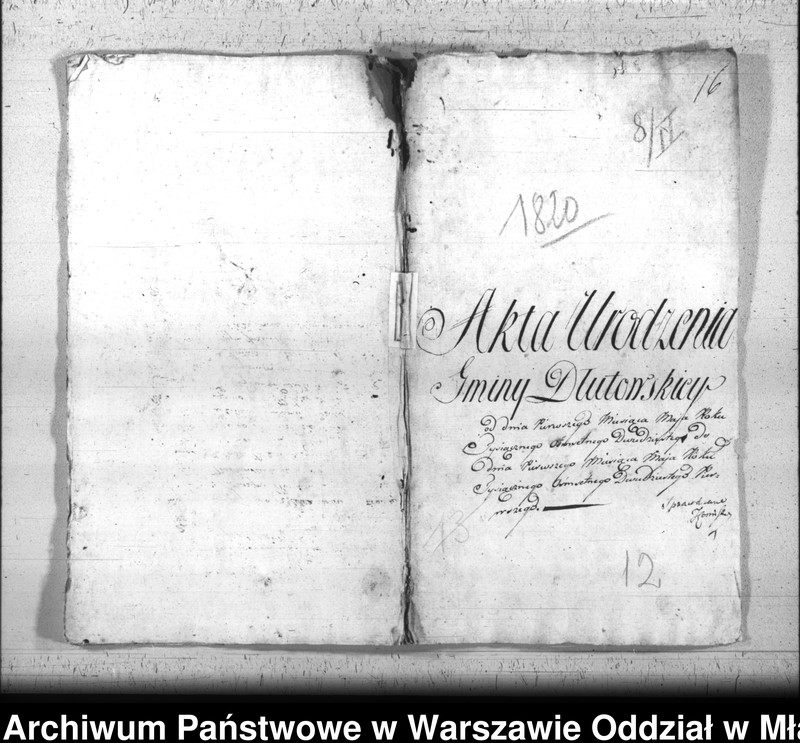 16
8/VI
1820
Akta Urodzenia
Gminy Dlutowskiey
od dnia Pierwszego Miesiąca Maja Roku
Tysiącznego Osmsetnego Dwudziestego do
dnia Pierwszego Miesiąca Maja Roku
Tysiącznego Osmsetnego Dwudziestego Pier-
wszego.
12
Archiwum Państwowe w Warszawie Oddział w Mła